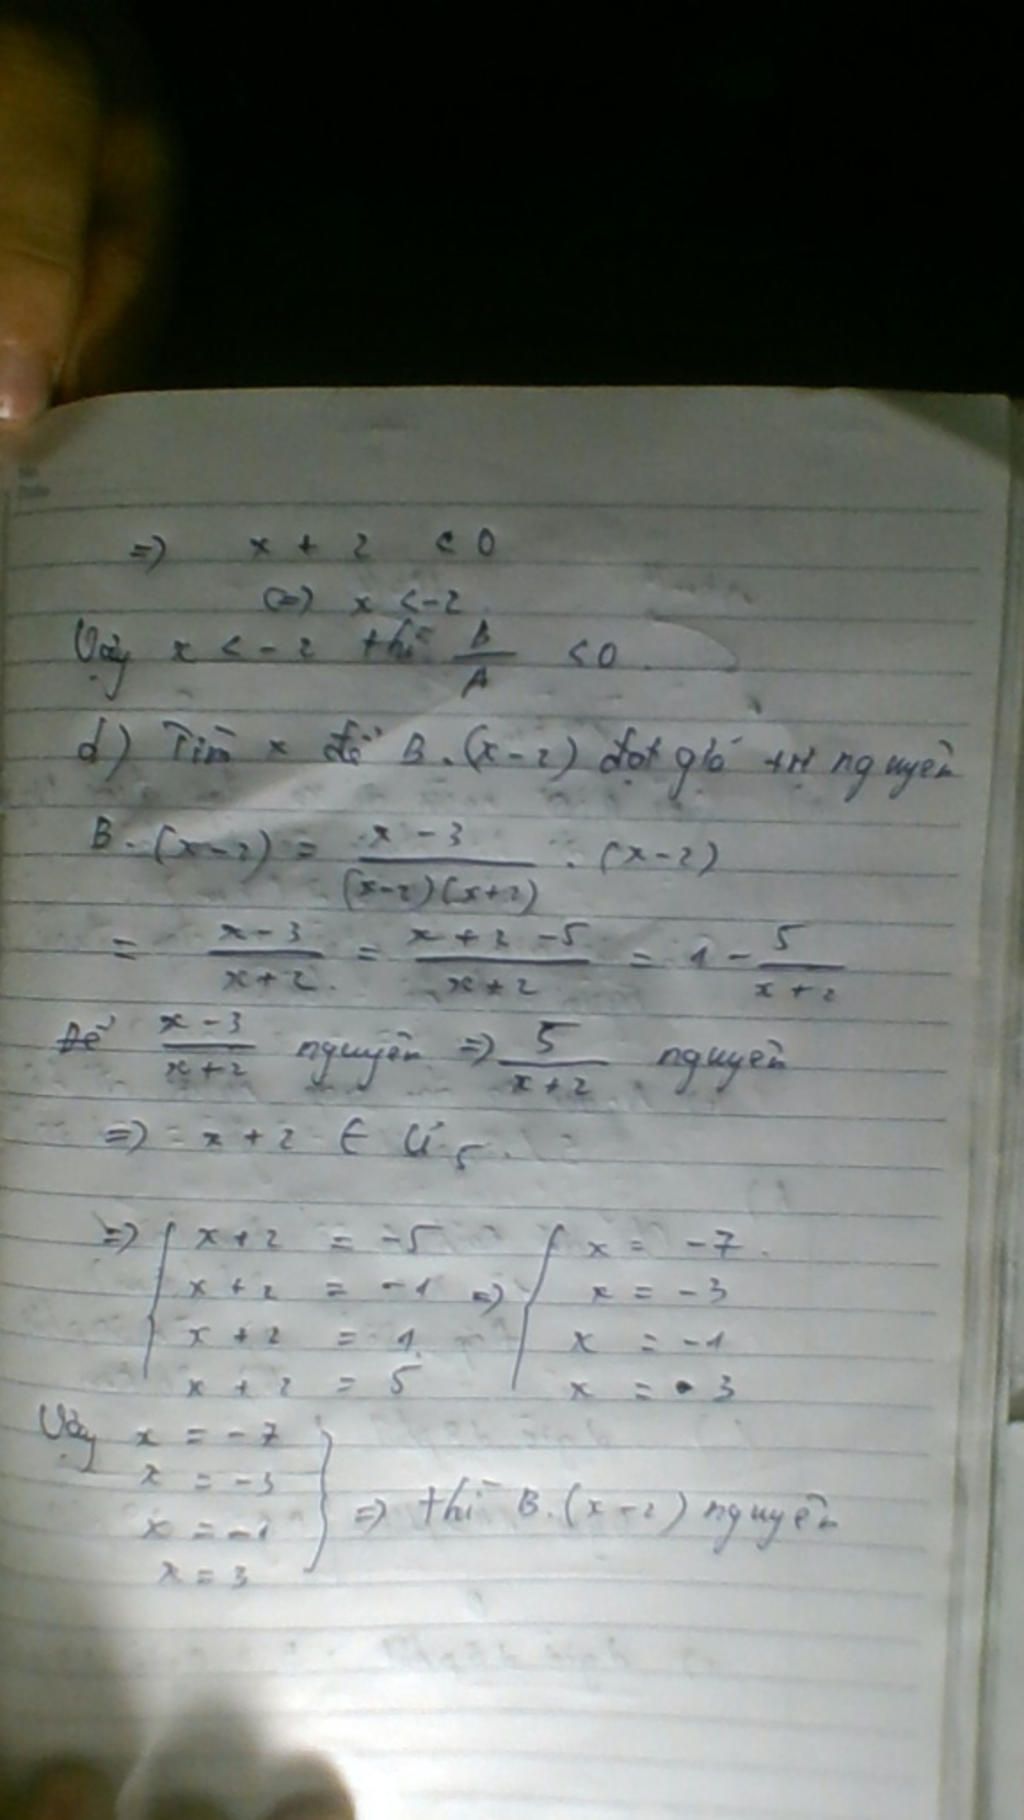 => x + 2 < 0
<=> x < -2
Vậy x < -2 thì B/A < 0.
d) Tìm x để B.(x-2) đạt giá trị nguyên
B.(x-2) = x-3/(x-2)(x+2) . (x-2)
= x-3/x+2 = x+2-5/x+2 = 1 - 5/x+2
Để x-3/x+2 nguyên => 5/x+2 nguyên
=> x+2 ∈ Ư5.
=> { x+2 = -5 { x = -7
x+2 = -1 => x = -3
x+2 = 1 x = -1
x+2 = 5 x = 3
Vậy x = -7
x = -3
x = -1 } => thì B.(x-2) nguyên
x = 3